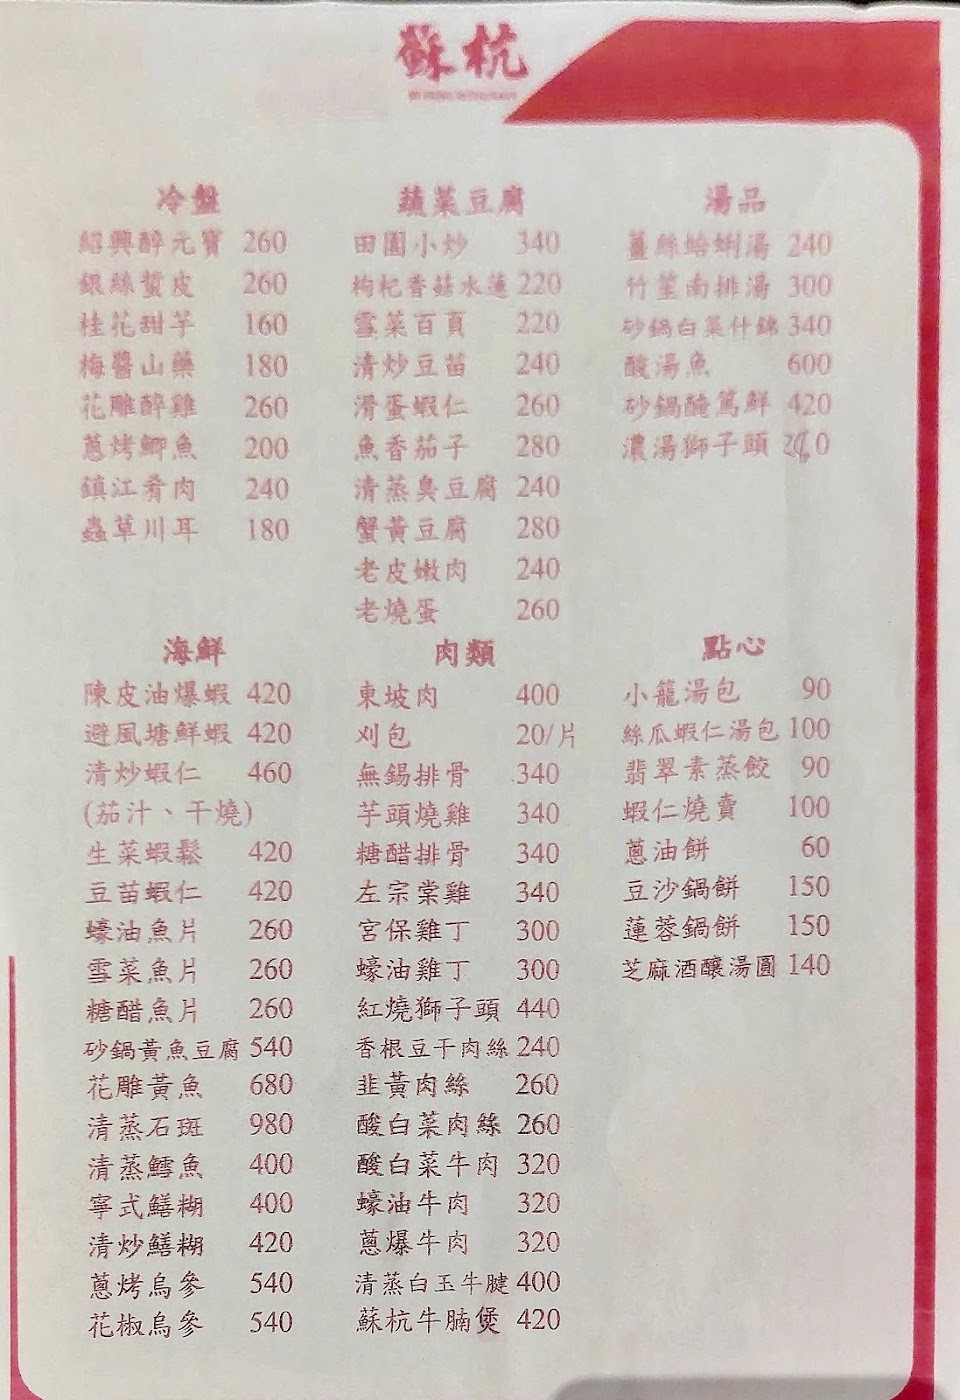 蘇杭
冷盤
紹興醉元寶 260
銀絲蜇皮 260
桂花甜芋 160
梅醬山藥 180
花雕醉雞 260
蔥烤鯽魚 200
鎮江肴肉 240
蟲草川耳 180
蔬菜豆腐
田園小炒 340
枸杞香菇水蓮 220
雪菜百頁 220
清炒豆苗 240
滑蛋蝦仁 260
魚香茄子 280
清蒸臭豆腐 240
蟹黃豆腐 280
老皮嫩肉 240
老燒蛋 260
湯品
薑絲蛤蜊湯 240
竹笙南排湯 300
砂鍋白菜什錦 340
酸湯魚 600
砂鍋醃篤鮮 420
濃湯獅子頭
海鮮
陳皮油爆蝦 420
避風塘鮮蝦 420
清炒蝦仁 460
(茄汁、干燒)
生菜蝦鬆 420
豆苗蝦仁 420
蠔油魚片 260
雪菜魚片 260
糖醋魚片 260
砂鍋黃魚豆腐 540
花雕黃魚 680
清蒸石斑 980
清蒸鱈魚 400
寧式鱔糊 400
清炒鱔糊 420
蔥烤烏參 540
花椒烏參 540
肉類
東坡肉 400
刈包 20/片
無錫排骨 340
芋頭燒雞 340
糖醋排骨 340
左宗棠雞 340
宮保雞丁 300
蠔油雞丁 300
紅燒獅子頭 440
香根豆干肉絲 240
韭黃肉絲 260
酸白菜肉絲 260
酸白菜牛肉 320
蠔油牛肉 320
蔥爆牛肉 320
清蒸白玉牛腱 400
蘇杭牛腩煲 420
點心
小籠湯包 90
絲瓜蝦仁湯包 100
翡翠素蒸餃 90
蝦仁燒賣 100
蔥油餅 60
豆沙鍋餅 150
蓮蓉鍋餅 150
芝麻酒釀湯圓 140